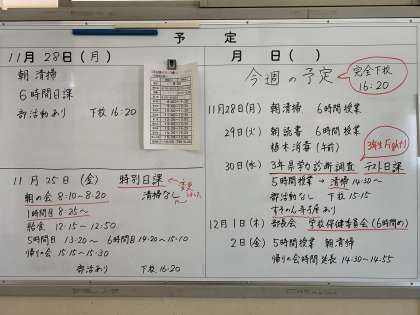 予定
11月28日(月)
朝清掃
6時間日課
部活動あり 下校16:20
11月25日(金) 特別日課
変更
朝の会 8:10~8:20 清掃なし
1時間目 8:25~
給食 12:15~12:50
5時間目 13:20~ 6時間目 14:20~15:10
帰りの会 15:15~15:30
部活あり 下校 16:20
月 日( )
今週の予定
完全下校
16:20
11月28日(月) 朝清掃 6時間授業
29日(火) 朝読書 6時間授業
植木消毒(午前)
3年生Fight!
30日(水) 3年県学力診断調査 テスト日課
5時間授業 → 清掃14:30~
部活動なし 下校 15:15
12月1日(木) 部長会 学校保健委員会(6時間め)
2日(金) 5時間授業 朝清掃
帰りの会時間延長 14:30~14:55